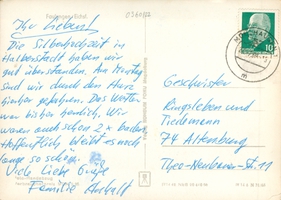 Ihr Lieben!
Die Silberhochzeit in
Halberstadt haben wir
gut überstanden. Am Montag
sind wir durch den Harz
hierher gefahren. Das Wetter
war bisher herrlich. Wir
waren auch schon 2 x baden.
Hoffentlich bleibt es noch
lange so schön.
Viele liebe Grüße
Familie
10
Geschwister
Ringsleben und
Tiedemann
74 Altenburg
Theo-Neubauer-Str. 11